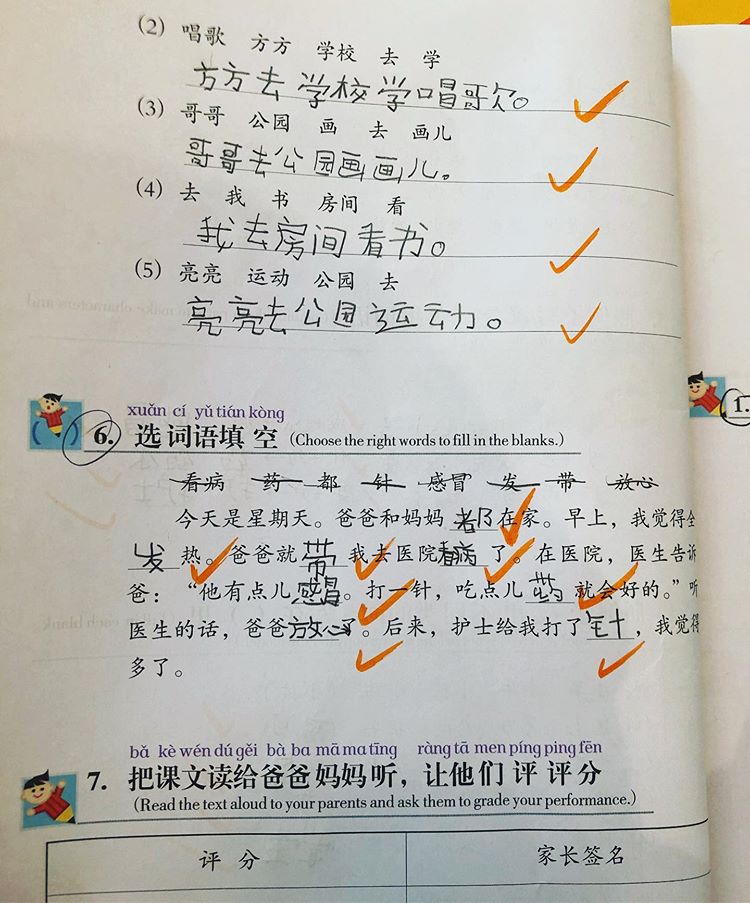 (2) 唱歌 方方 学校 去 学
方方去学校学唱歌。
(3) 哥哥 公园 画 去 画儿
哥哥去公园画画儿。
(4) 去 我 书 房间 看
我去房间看书。
(5) 亮亮 运动 公园 去
亮亮去公园运动。
xuǎn cí yǔ tián kòng
6. 选词语填空 (Choose the right words to fill in the blanks.)
看病 药 都 针 感冒 发 带 放心
今天是星期天。爸爸和妈妈都在家。早上，我觉得全
发热。爸爸就带我去医院看病了。在医院，医生告诉
爸：“他有点儿感冒。打一针，吃点儿药就会好的。”听
医生的话，爸爸放心了。后来，护士给我打了针，我觉得
多了。
bǎ kè wén dú gěi bà ba mā ma tīng ràng tā men píng ping fēn
7. 把课文读给爸爸妈妈听，让他们评评分
(Read the text aloud to your parents and ask them to grade your performance.)
评分 家长签名
1.